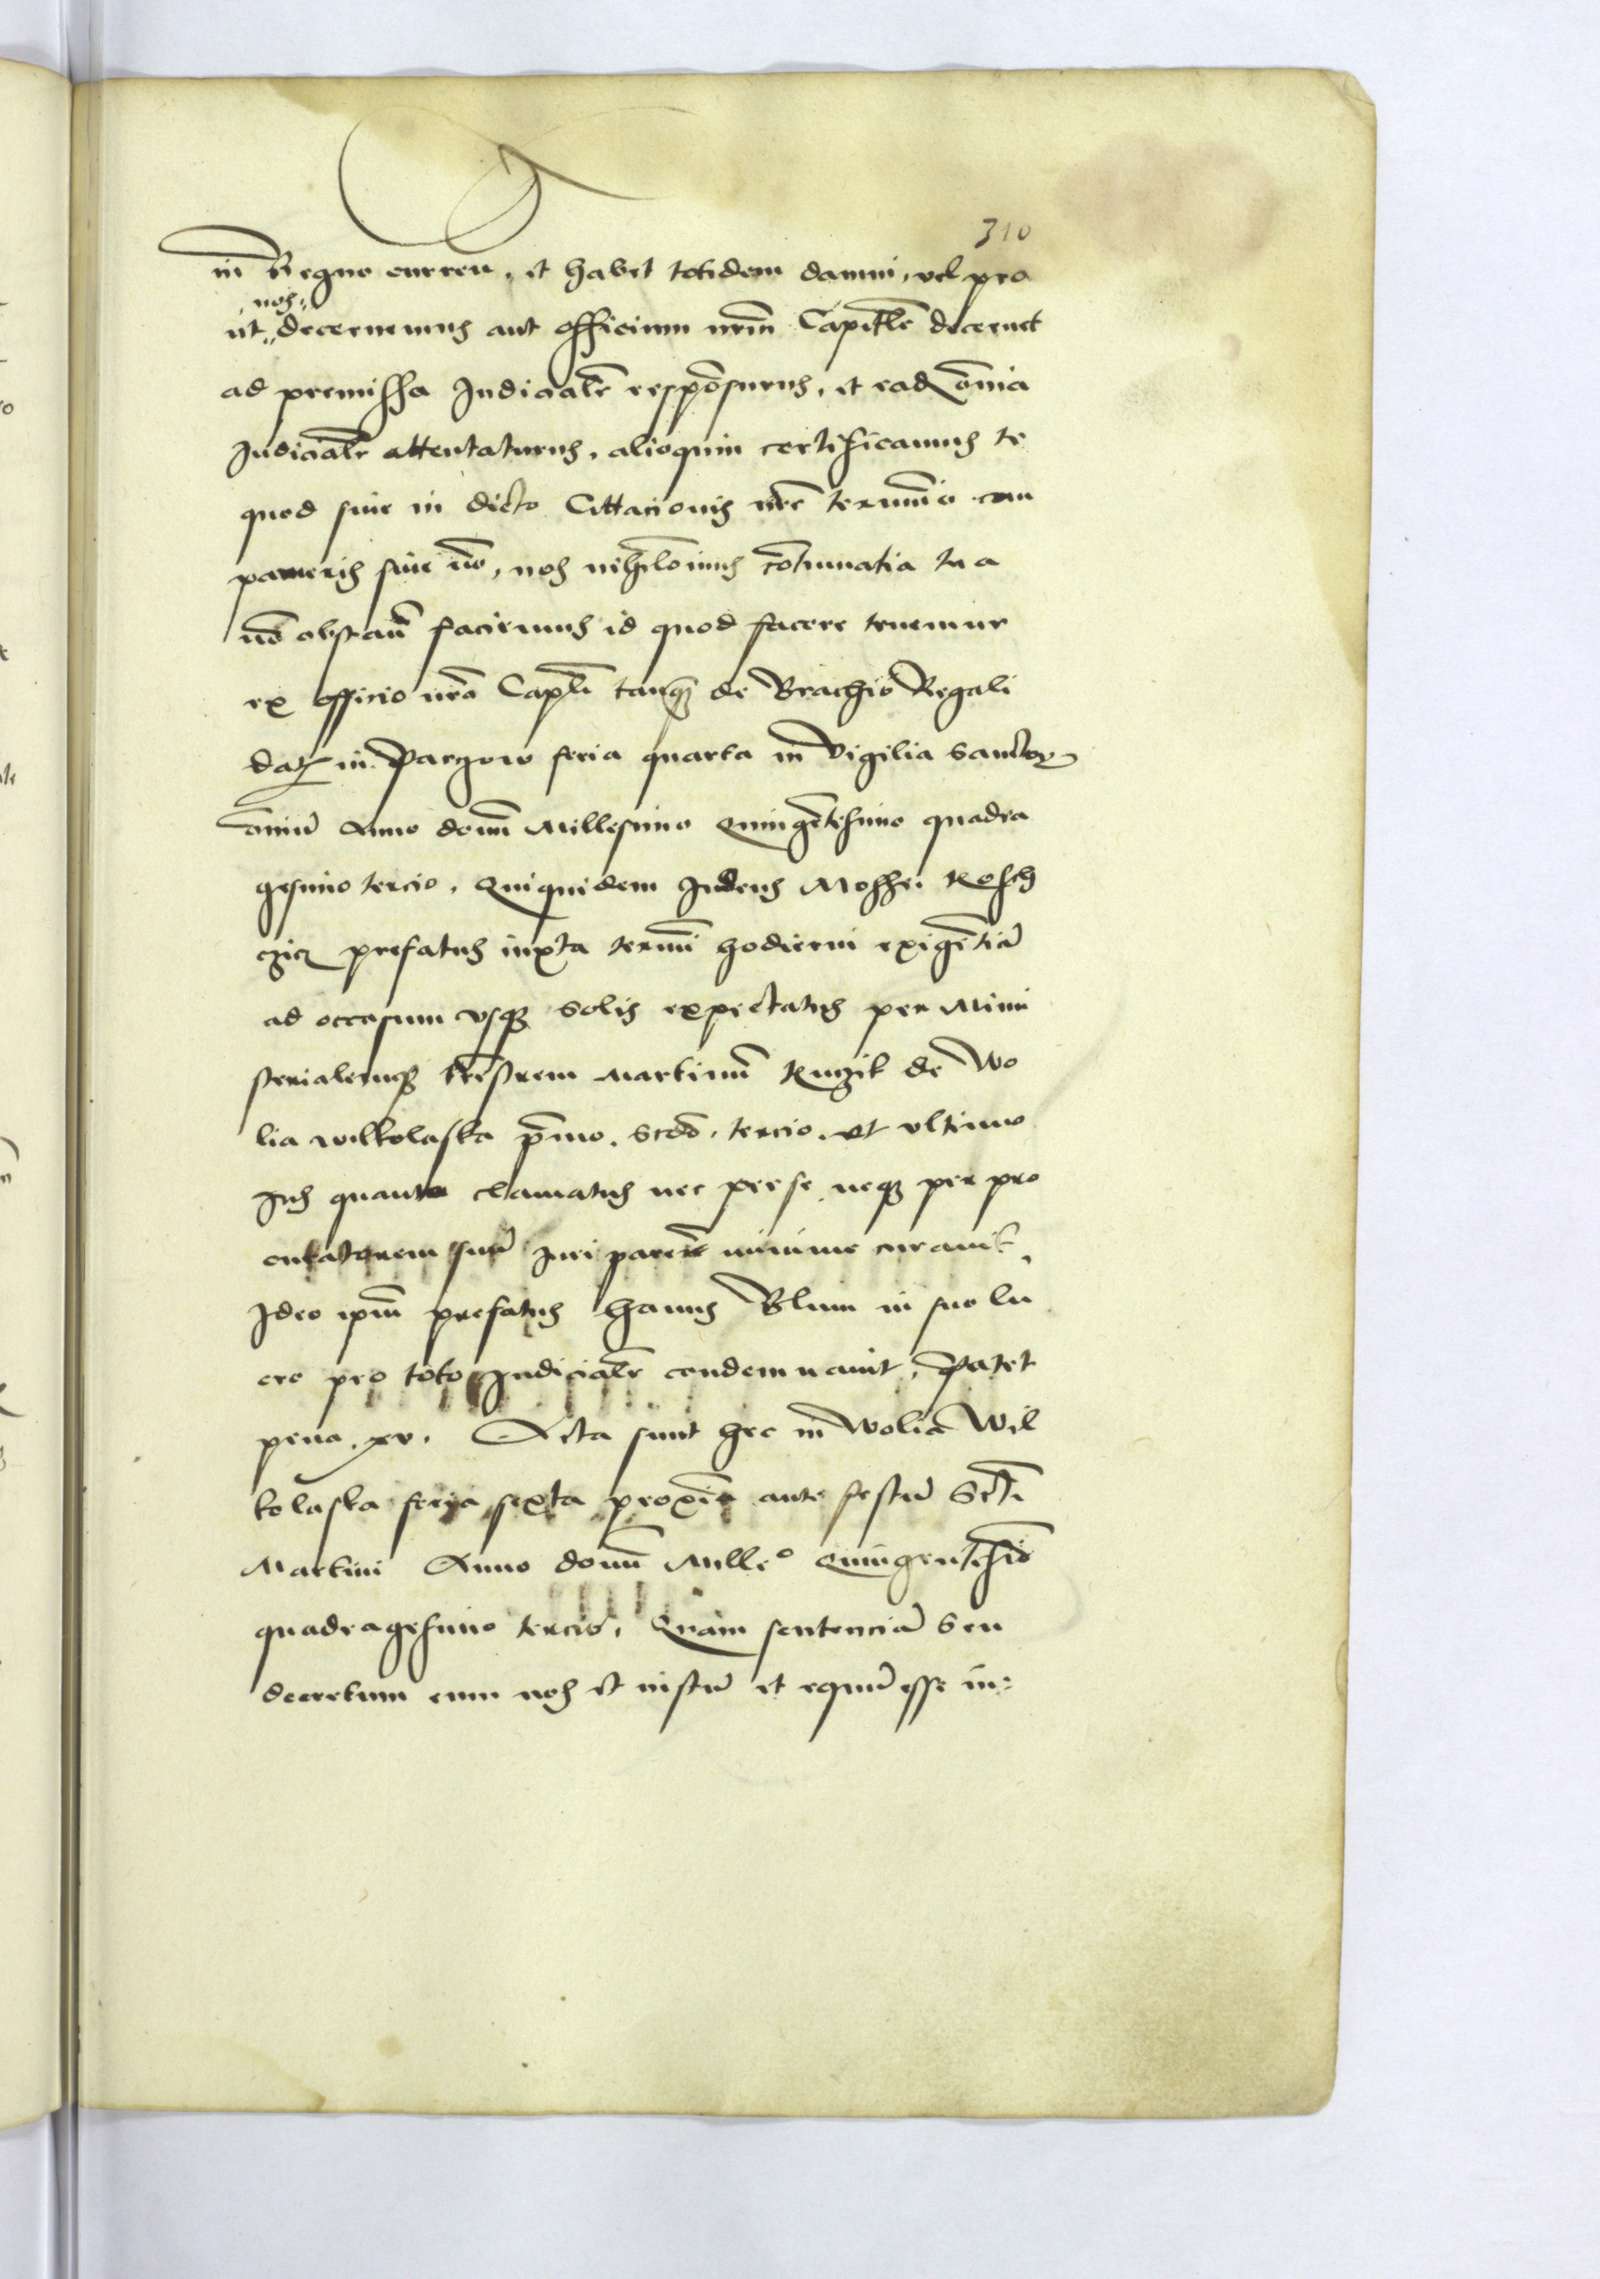 310
in Regno curren, et habet totidem damni, vel pro
nos
ut decernemus aut officium nrm̄ Capitle decernet
ad premissa Iudicialr̄ respōsurus, et eadē omnia
Iudicialr̄ attentaturus, alioquin certificamus te
quod siue in dicto Cittacionis nrē termino com
parueris siue nō, nos nihilominus cōtumatia tua
nō obstan̄ faciemus id quod facere tenemur
ex officio nrō Caplī tanq̄ de Brachio Regali
dat in Parczow feria quarta in vigilia Sanctor
omniū Anno domī Millesimo Quingētesimo quadra
gesimo tercio. Quiquidem Iudeus Mosses Kosch
czicz prefatus iuxta termī hodierni exigētiā
ad occasum vsq solis expectatus per Mini
sterialemq trēstrem Martinum Ruczik de Wo
lia wilkolaska pr̄mo. scdō. tercio. et vltimo
Ius quanto clamatus nec per se neq per pro
curatorem suū Iuri parere minime curauit.
Ideo ipm̄ prefatus Hanus Blum in suo lu
cro pro toto Iudicialr̄ condemnauit. Patet
pena. xv. Acta sunt hec in wolia Wil
kolaska feria sexta proxīa ante festū Sctī
Martini Anno domī Mille° Quingentesīo
quadragesimo tercio. Quam sentenciā seu
decretum cum nos et iustū et equū esse in: